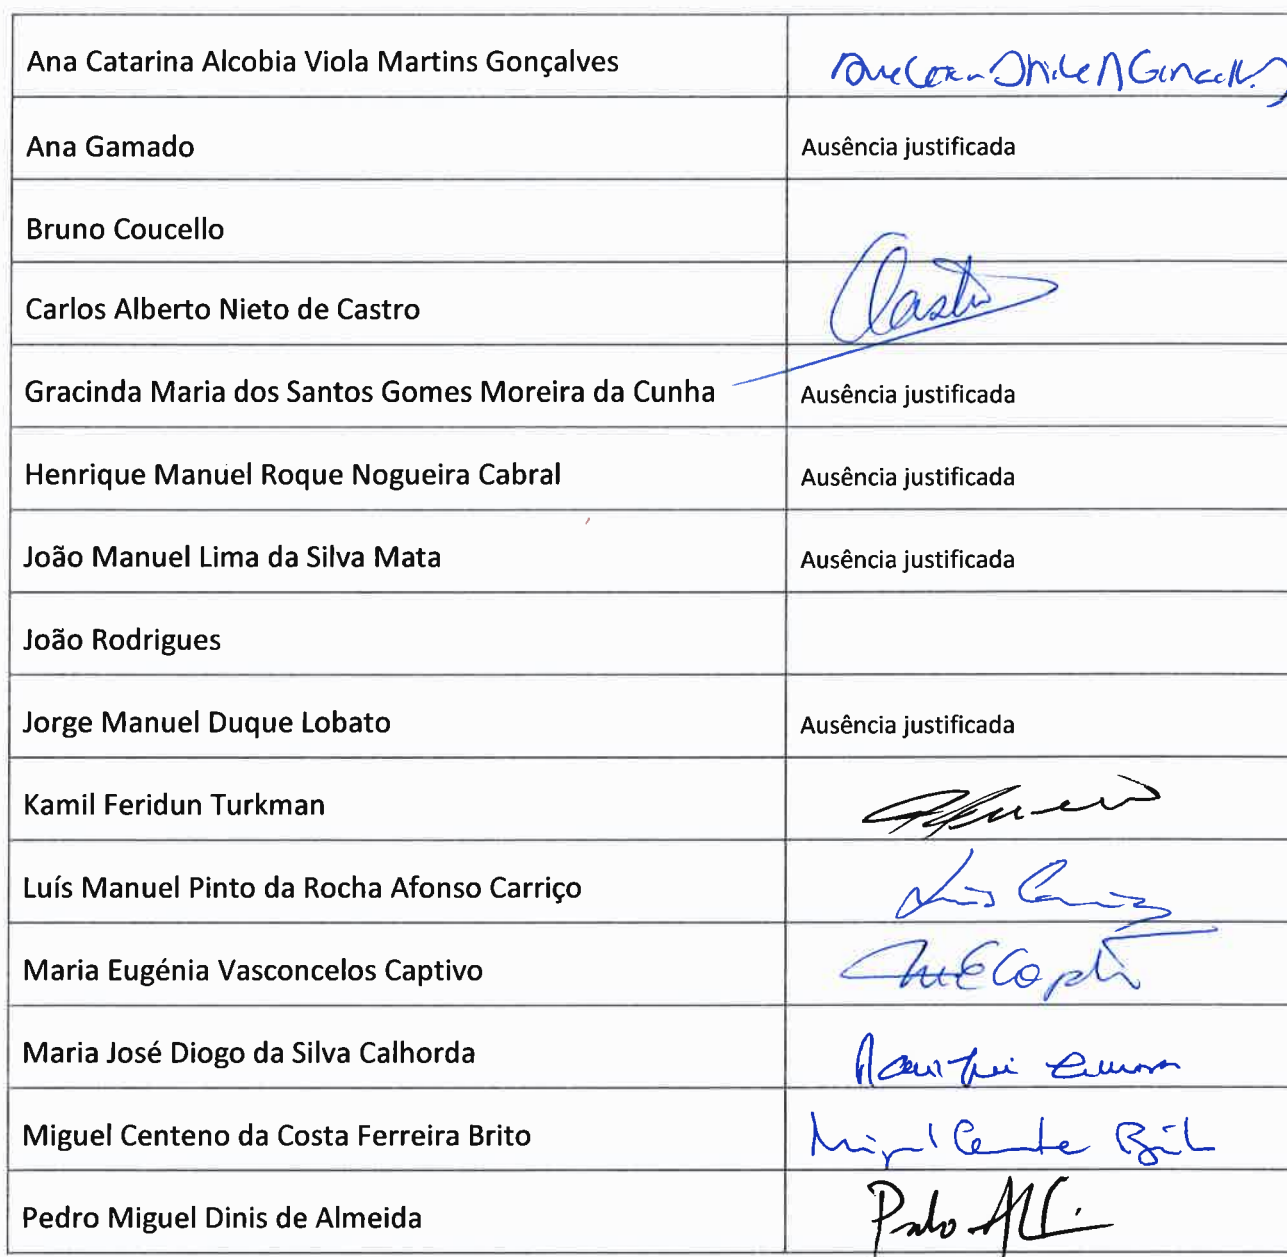 Ana Catarina Alcobia Viola Martins Gonçalves
Ana Gamado Ausência justificada
Bruno Coucello
Carlos Alberto Nieto de Castro Castro
Gracinda Maria dos Santos Gomes Moreira da Cunha Ausência justificada
Henrique Manuel Roque Nogueira Cabral Ausência justificada
João Manuel Lima da Silva Mata Ausência justificada
João Rodrigues
Jorge Manuel Duque Lobato Ausência justificada
Kamil Feridun Turkman
Luís Manuel Pinto da Rocha Afonso Carriço
Maria Eugénia Vasconcelos Captivo
Maria José Diogo da Silva Calhorda
Miguel Centeno da Costa Ferreira Brito Miguel Centeno Brito
Pedro Miguel Dinis de Almeida